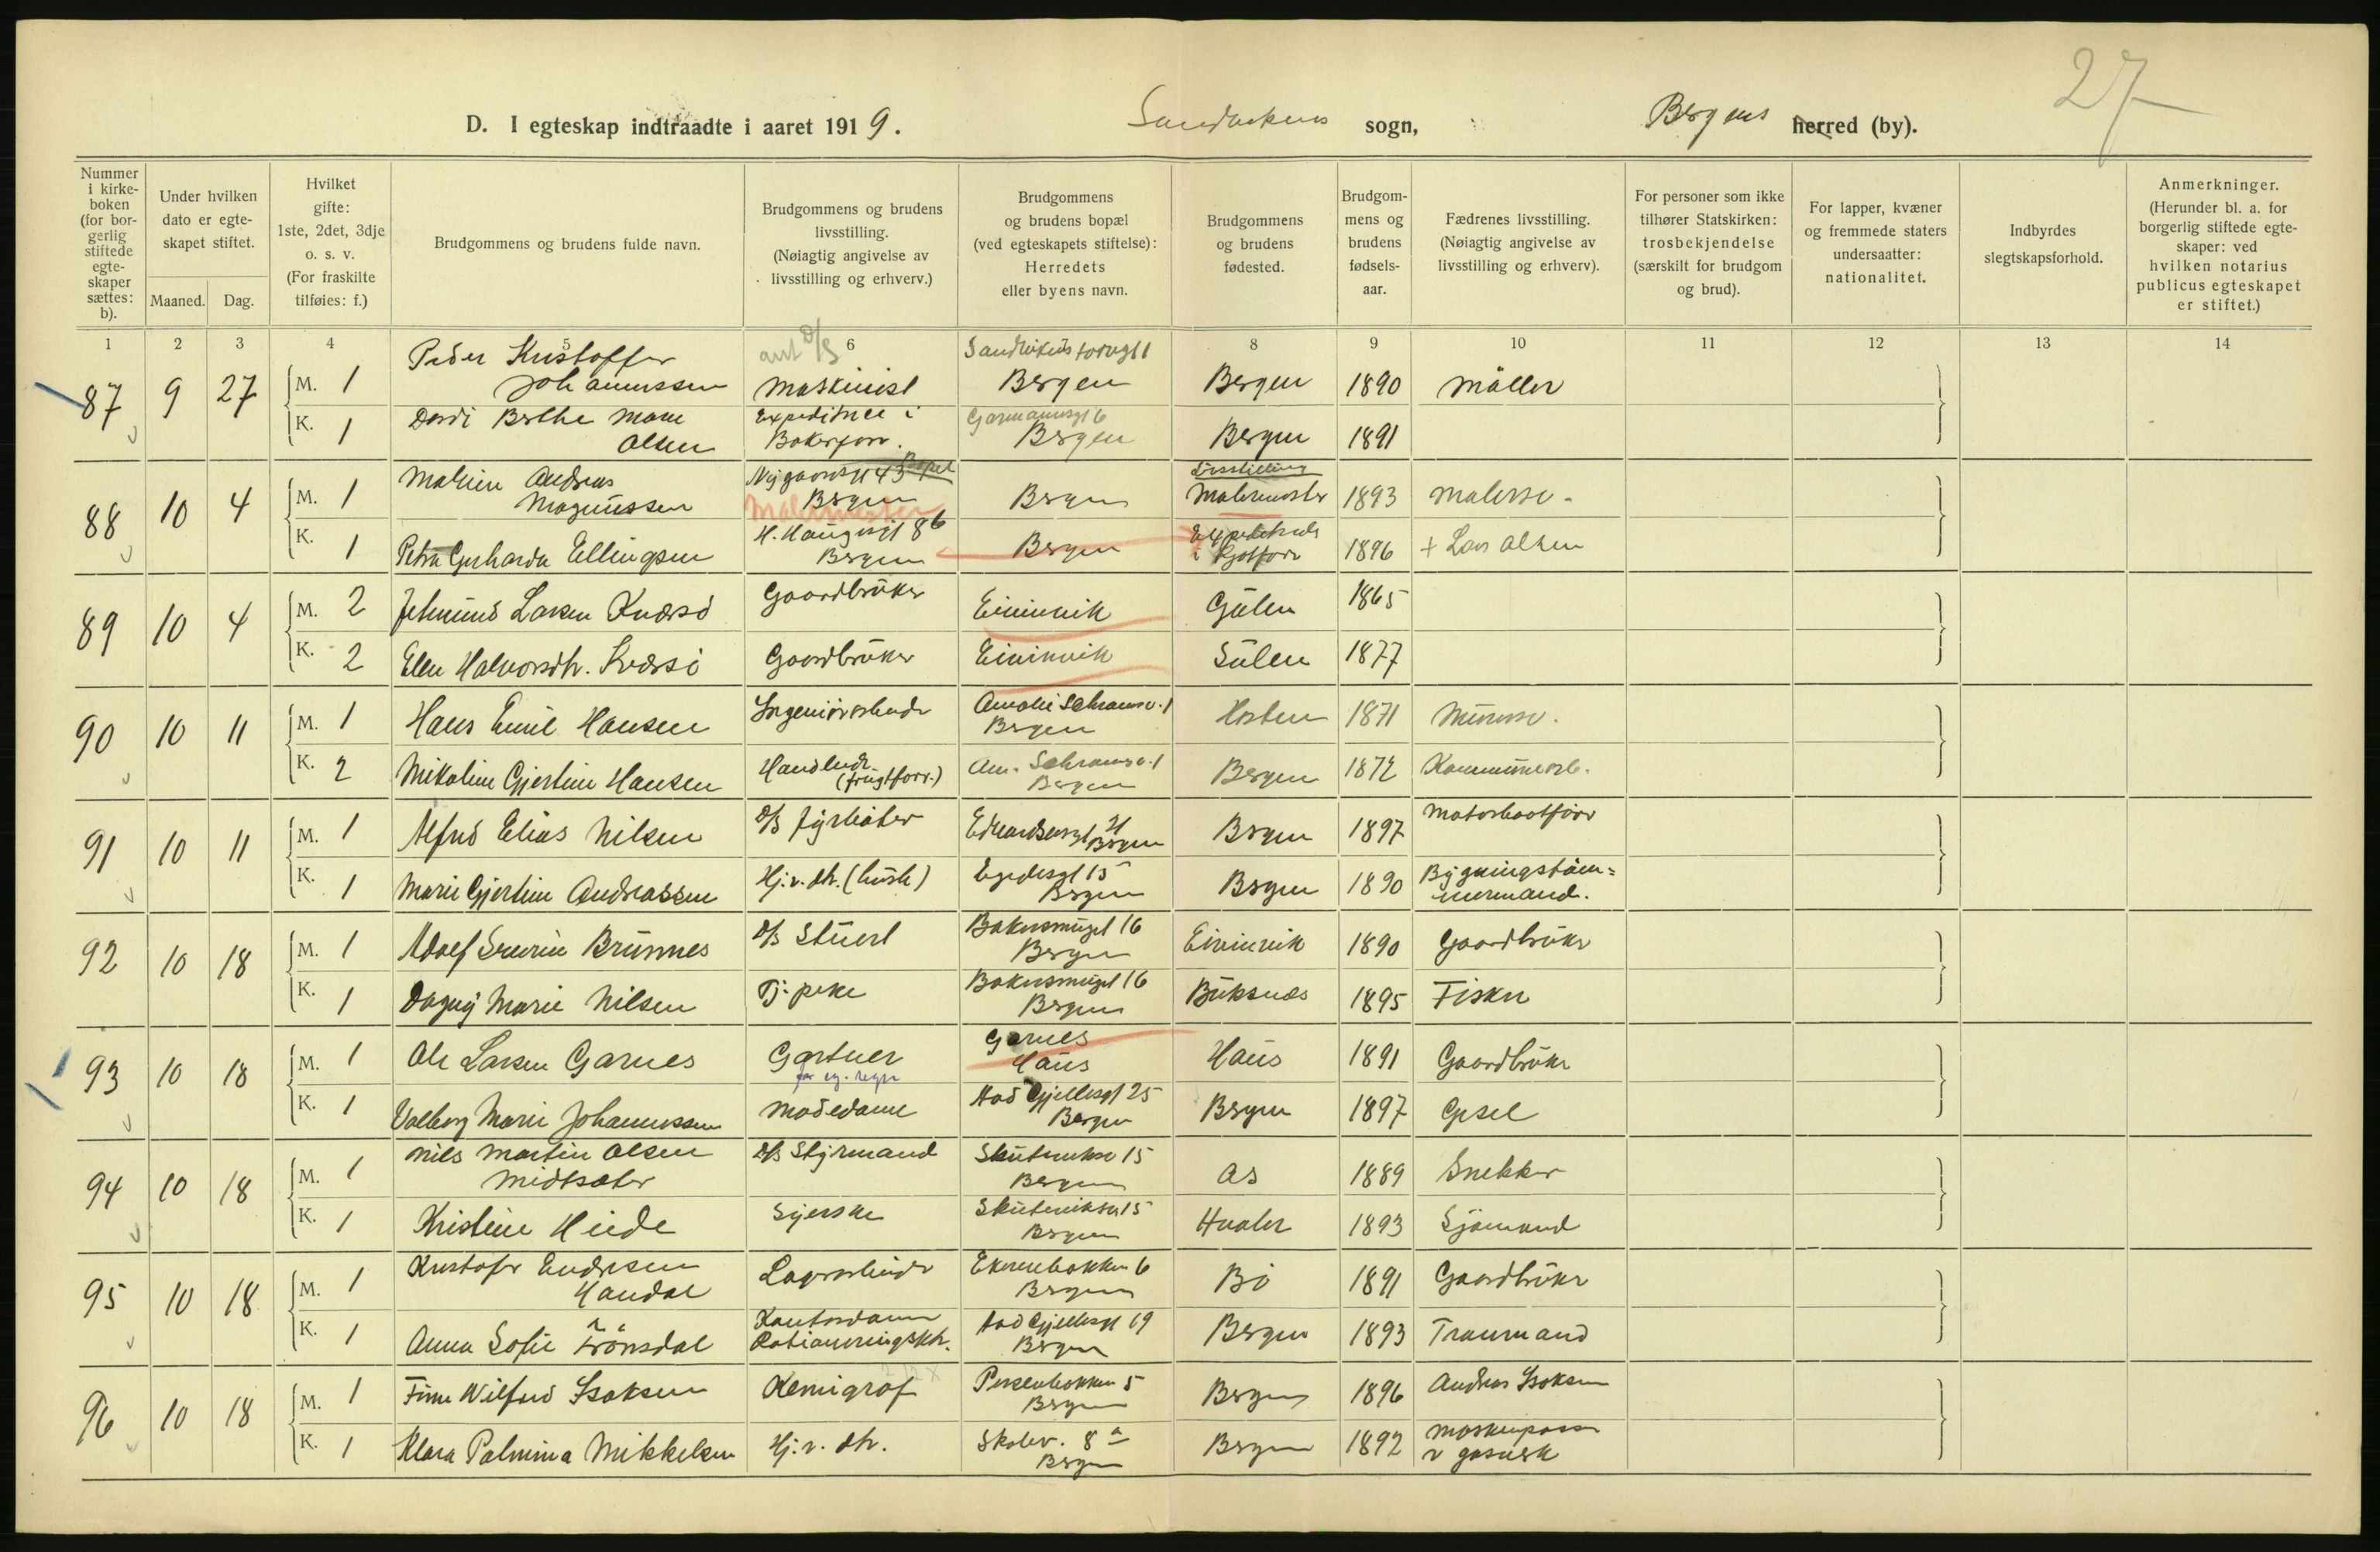 27
D. I egteskap indtraadte i aaret 1919. Sandvikens sogn, Bergens herred (by).
Nummer i kirkeboken (for borgerlig stiftede egteskaper sættes: b).
Under hvilken dato er egteskapet stiftet.
Maaned. Dag.
Hvilket gifte: 1ste, 2det, 3dje o. s. v. (For fraskilte tilføies: f.)
Brudgommens og brudens fulde navn.
Brudgommens og brudens livsstilling. (Nøiagtig angivelse av livsstilling og erhverv.)
Brudgommens og brudens bopæl (ved egteskapets stiftelse): Herredets eller byens navn.
Brudgommens og brudens fødested.
Brudgommens og brudens fødselsaar.
Fædrenes livsstilling. (Nøiagtig angivelse av livsstilling og erhverv).
For personer som ikke tilhører Statskirken: trosbekjendelse (særskilt for brudgom og brud).
For lapper, kvæner og fremmede staters undersaatter: nationalitet.
Indbyrdes slegtskapsforhold.
Anmerkninger. (Herunder bl. a. for borgerlig stiftede egteskaper: ved hvilken notarius publicus egteskapet er stiftet.)
1 2 3 4 5 6 8 9 10 11 12 13 14
87 9 27 M. 1 Peder Kristoffer Johannessen ant D/S Maskinist Sandvikstorvgt 1 Bergen Bergen 1890 Möller
K. 1 Dordi Berthe Marie Olsen Expeditrice i Bakerforr. Garmannsgt 6 Bergen Bergen 1891
88 10 4 M. 1 Andreas Magnussen Nygaardsgt 43 Bopæl Bergen Malermester Bergen Livsstilling Malermester 1893 Malersv.
K. 1 Petra Gerharda Ellingsen H. Haugsgt 8b Bergen Bergen Expeditrice i Kjötforr 1896 + Lars Olsen
89 10 4 M. 2 Jetmund Larsen Kversö Gaardbruker Eivindvik Gulen 1865
K. 2 Elen Halvorsdtr. Kversö Gaardbruker Eivindvik Sulen 1877
90 10 11 M. 1 Hans Emil Hansen Amalie Schramsv. 1 Bergen 1871 Murersv.
K. 2 Nikoline Gjertine Hansen Handlende (frugtforr.) Am. Schramsv. 1 Bergen Bergen 1872 Kommunearb.
91 10 11 M. 1 Alfred Elias Nilsen D/S fyrböter Edvardsensgt 21 Bergen Bergen 1897 Motorbaotförer
K. 1 Marie Gjertine Andreassen Hj. v. dtr. (hush) Egedesgt 15 Bergen Bergen 1890 Bygningstömmermand.
92 10 18 M. 1 Adolf Severin Brunnes D/S Stuert Bakersmuget 16 Bergen Eivindvik 1890 Gaardbruker
K. 1 Dagny Marie Nilsen Tj. pike Bakersmuget 16 Bergen Buksnes 1895 Fisker
93 10 18 M. 1 Ole Larsen Garnes Gartner for eg. regn Garnes Haus Haus 1891 Gaardbruker
K. 1 Valborg Marie Johannessen Modedame Aad Gjellesgt 25 Bergen Bergen 1897 Gjsel
94 10 18 M. 1 Nils Martin Olsen Midtsæter D/S Styrmand Skuteviksv 15 Bergen Os 1889 Snekker
K. 1 Kristine Heide Syerske Skuteviksv 15 Bergen Hvaler 1893 Sjömand
95 10 18 M. 1 Kristofer Endresen Handal Lagerarbeider Ekrenbakken 6 Bergen Bö 1891 Gaardbruker
K. 1 Anna Sofie Frönsdal Kontordame Rationeringsktr. Aad Gjellesgt 19 Bergen Bergen 1893 Tranmand
96 10 18 M. 1 Finn Wilfred Isaksen Kemigraf Persenbakken 5 Bergen Bergen 1896 Andreas Isaksen
K. 1 Klara Palmina Mikkelsen Hj. v. dtr. Skolev. 8a Bergen Bergen 1892 Maskinpasser v gasverk